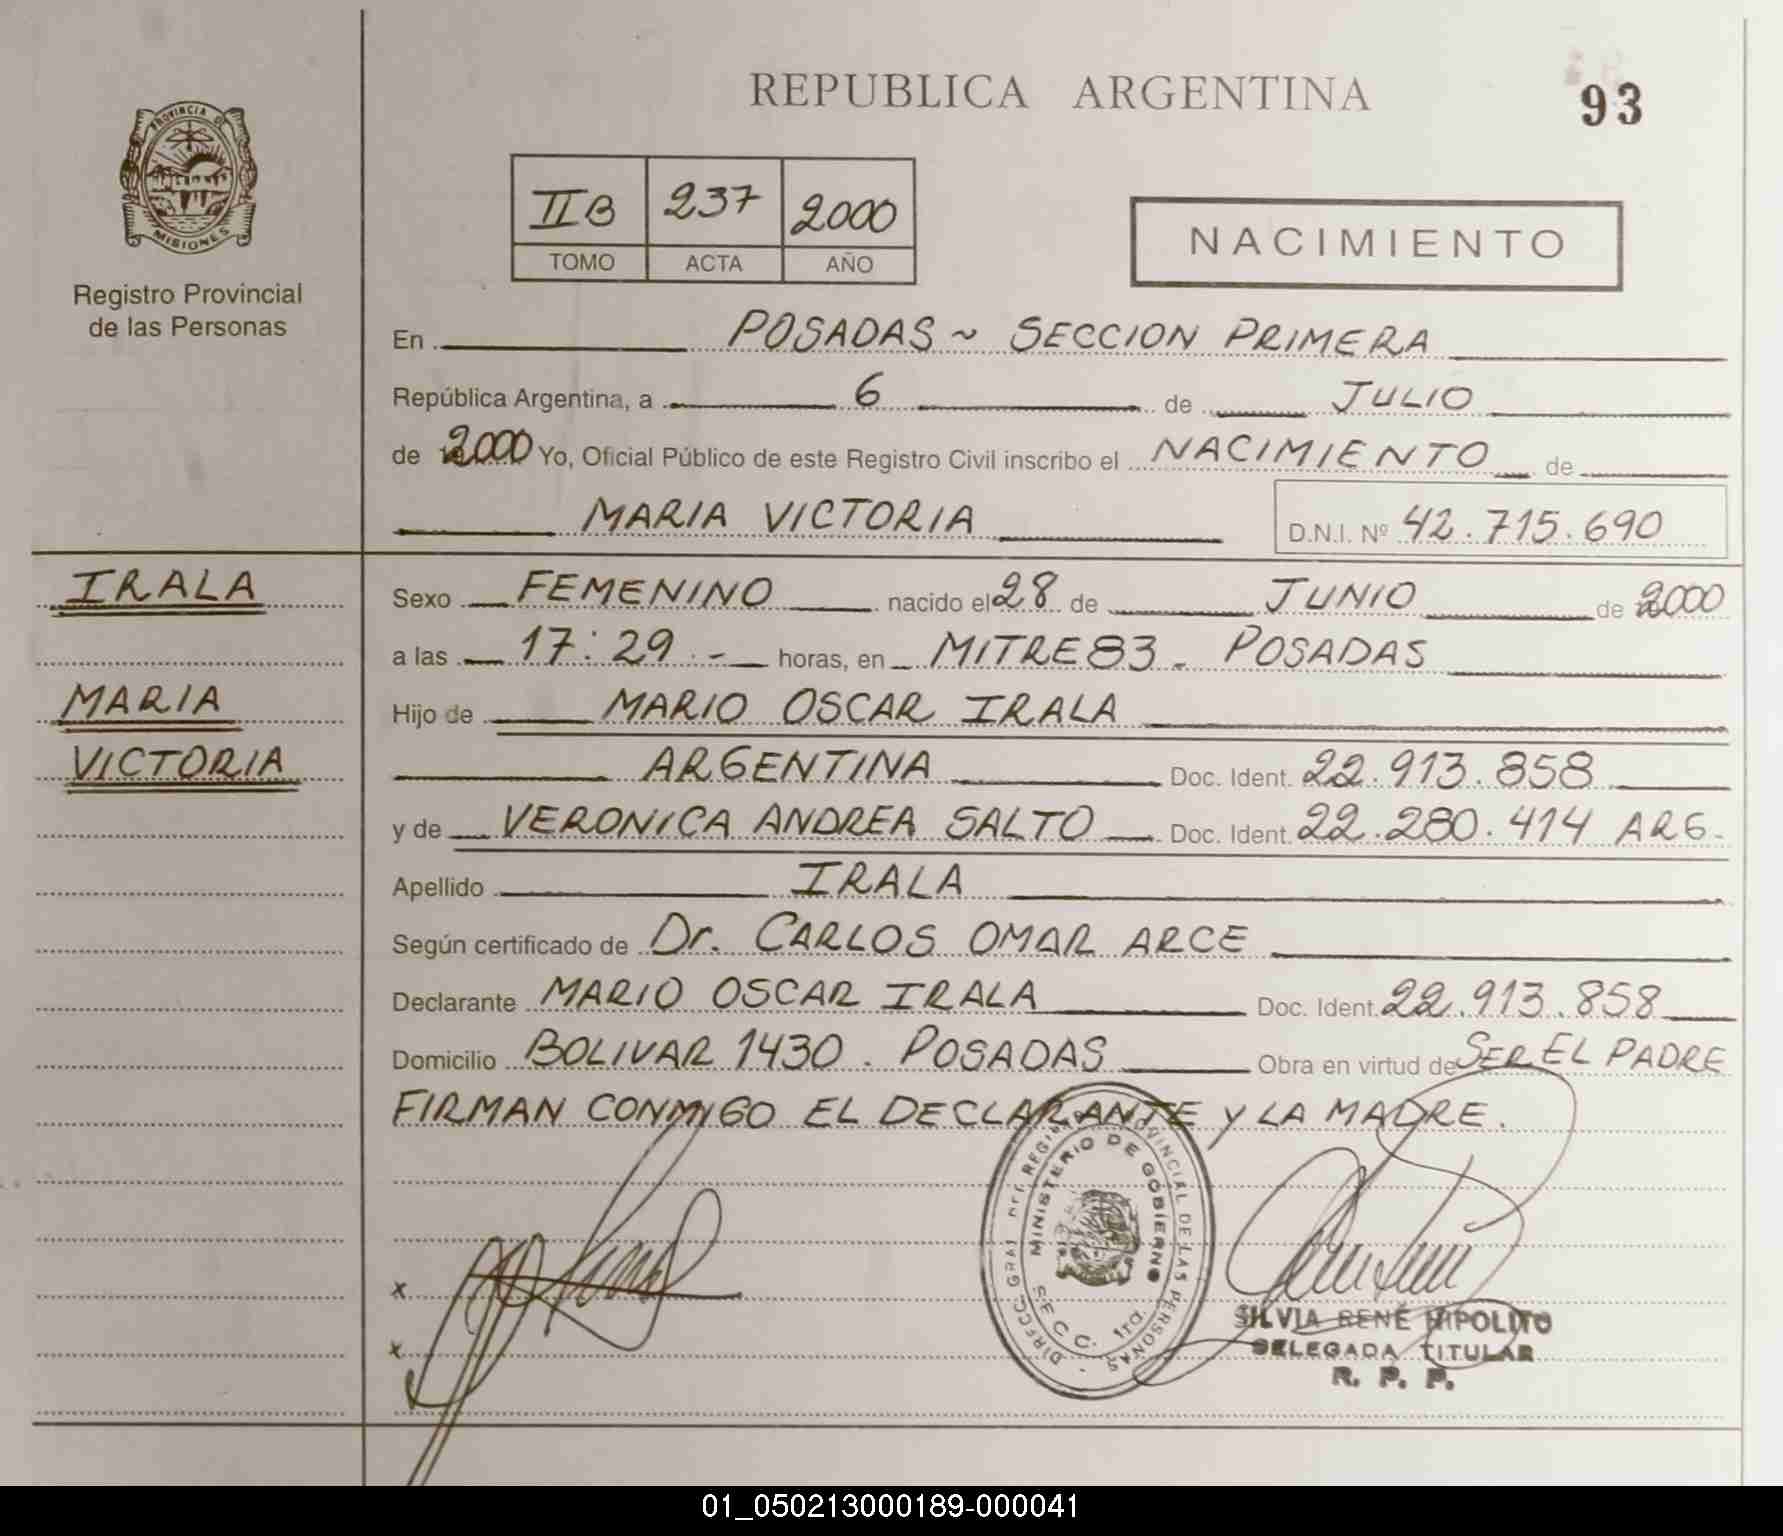 REPUBLICA ARGENTINA
93
PROVINCIA D
MISIONES
Registro Provincial
de las Personas
II B 237 2000
TOMO ACTA AÑO
NACIMIENTO
En POSADAS ~ SECCION PRIMERA
República Argentina, a 6 de JULIO
de 2000 Yo, Oficial Público de este Registro Civil inscribo el NACIMIENTO de
MARIA VICTORIA D.N.I. Nº 42.715.690
IRALA
MARIA
VICTORIA
Sexo FEMENINO nacido el 28 de JUNIO de 2000
a las 17:29.- horas, en MITRE 83 - POSADAS
Hijo de MARIO OSCAR IRALA
ARGENTINA Doc. Ident. 22.913.858
y de VERONICA ANDREA SALTO Doc. Ident. 22.280.414 ARG.
Apellido IRALA
Según certificado de Dr. CARLOS OMAR ARCE
Declarante MARIO OSCAR IRALA Doc. Ident. 22.913.858
Domicilio BOLIVAR 1430 . POSADAS Obra en virtud de SER EL PADRE
FIRMAN CONMIGO EL DECLARANTE Y LA MADRE.
x
x
DIRECC. GRAL DEL REGISTRO PROVINCIAL DE LAS PERSONAS
MINISTERIO DE GOBIERNO
SECC. 1ra.
SILVIA RENÉ HIPOLITO
DELEGADA TITULAR
R. P. P.
01_050213000189-000041